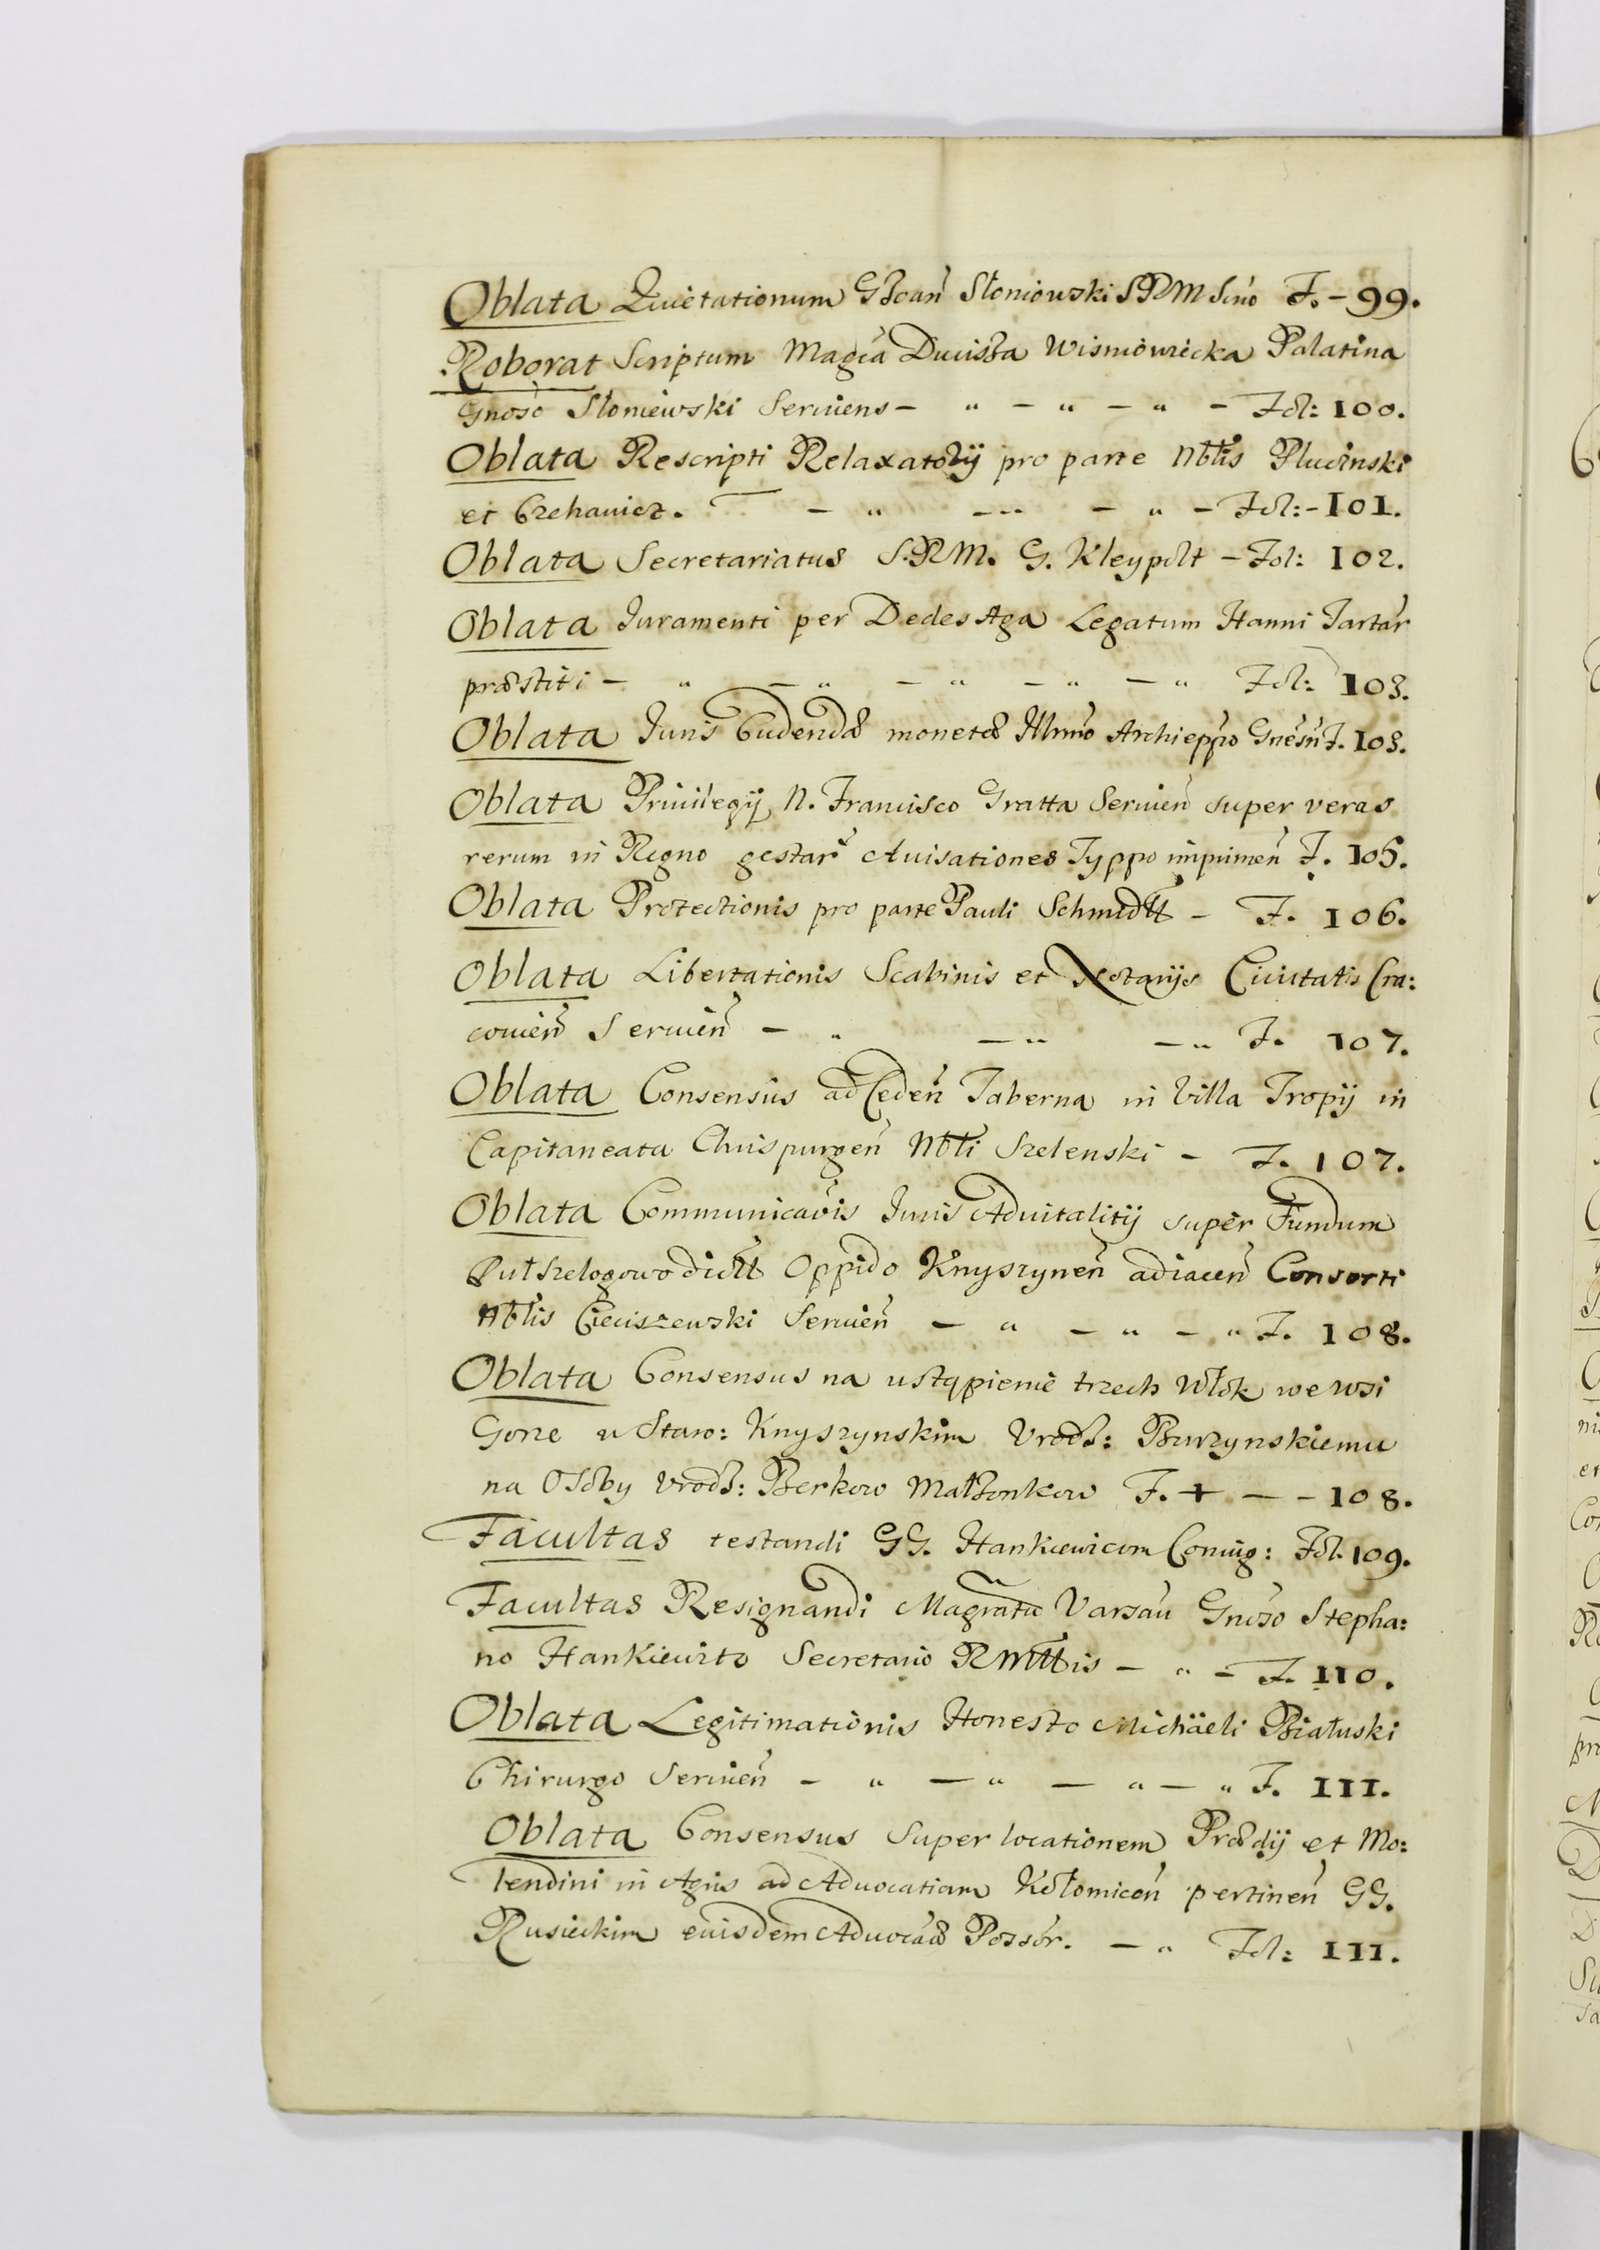 Oblata Quietationum G Joan̄ Słoniowski SRM Scrio F. - 99.
Roborat Scriptum Magca Ducissa Wisniowiecka Palatina
Gnoso Słoniewski Serviens - " - " - " - Fol: 100.
Oblata Rescripti Relaxatorij pro parte Nbtis Plucinski
et Czehanicz. - " - " - " - Fol: - 101.
Oblata Secretariatus S.R.M. G. Kleypolt - Fol: 102.
Oblata Juramenti per Dedes Aga Legatum Hanni Tartar
præstiti - " - " - " - " - " Fol: 103.
Oblata Juris Cudendæ monetæ Illrmo Archieppo Gnesn̄ F. 103.
Oblata Privilegij N. Francisco Gratta Servien̄ super veras
rerum in Regno gestar̄ Avisationes Typpo imprimen̄ F. 105.
Oblata Protectionis pro parte Pauli Schmidtt - F. 106.
Oblata Libertationis Scabinis et Notarijs Civitatis Cra:
covien̄ Servien̄ - " - " - " F. 107.
Oblata Consensus ad Ceden̄ Taberna in Villa Tropij in
Capitaneatu Chrispurgen̄ Nbti Szelenski - F. 107.
Oblata Communicaōis Juris Advitalitij super Fundum
Puł Szelogowo dictt Oppido Knyszynen̄ adiacen̄ Consorti
Nbtis Cieciszewski Servien̄ - " - " - " F. 108.
Oblata Consensus na ustąpienie trzech Włok we wsi
Gorze w Staro: Knyszynskim Urodz: Burzynskiemu
na Osoby Urodz: Berkow Małzonkow F. + - - 108.
Facultas testandi GG. Hankiewicom Coniug: Fol. 109.
Facultas Resignandi Magratu Varsav Gnoso Stepha:
no Hankiewito Secretario RMttis - " - F. 110.
Oblata Legitimationis Honesto Michäeli Białuski
Chirurgo Servien̄ - " - " - " - " F. 111.
Oblata Consensus super locationem Prædij et Mo:
lendini in Agris ad Advocatiam Kołomicen̄ pertinen̄ GG.
Rusieckim eiusdem Advocaæ Possor. - " Fol: 111.